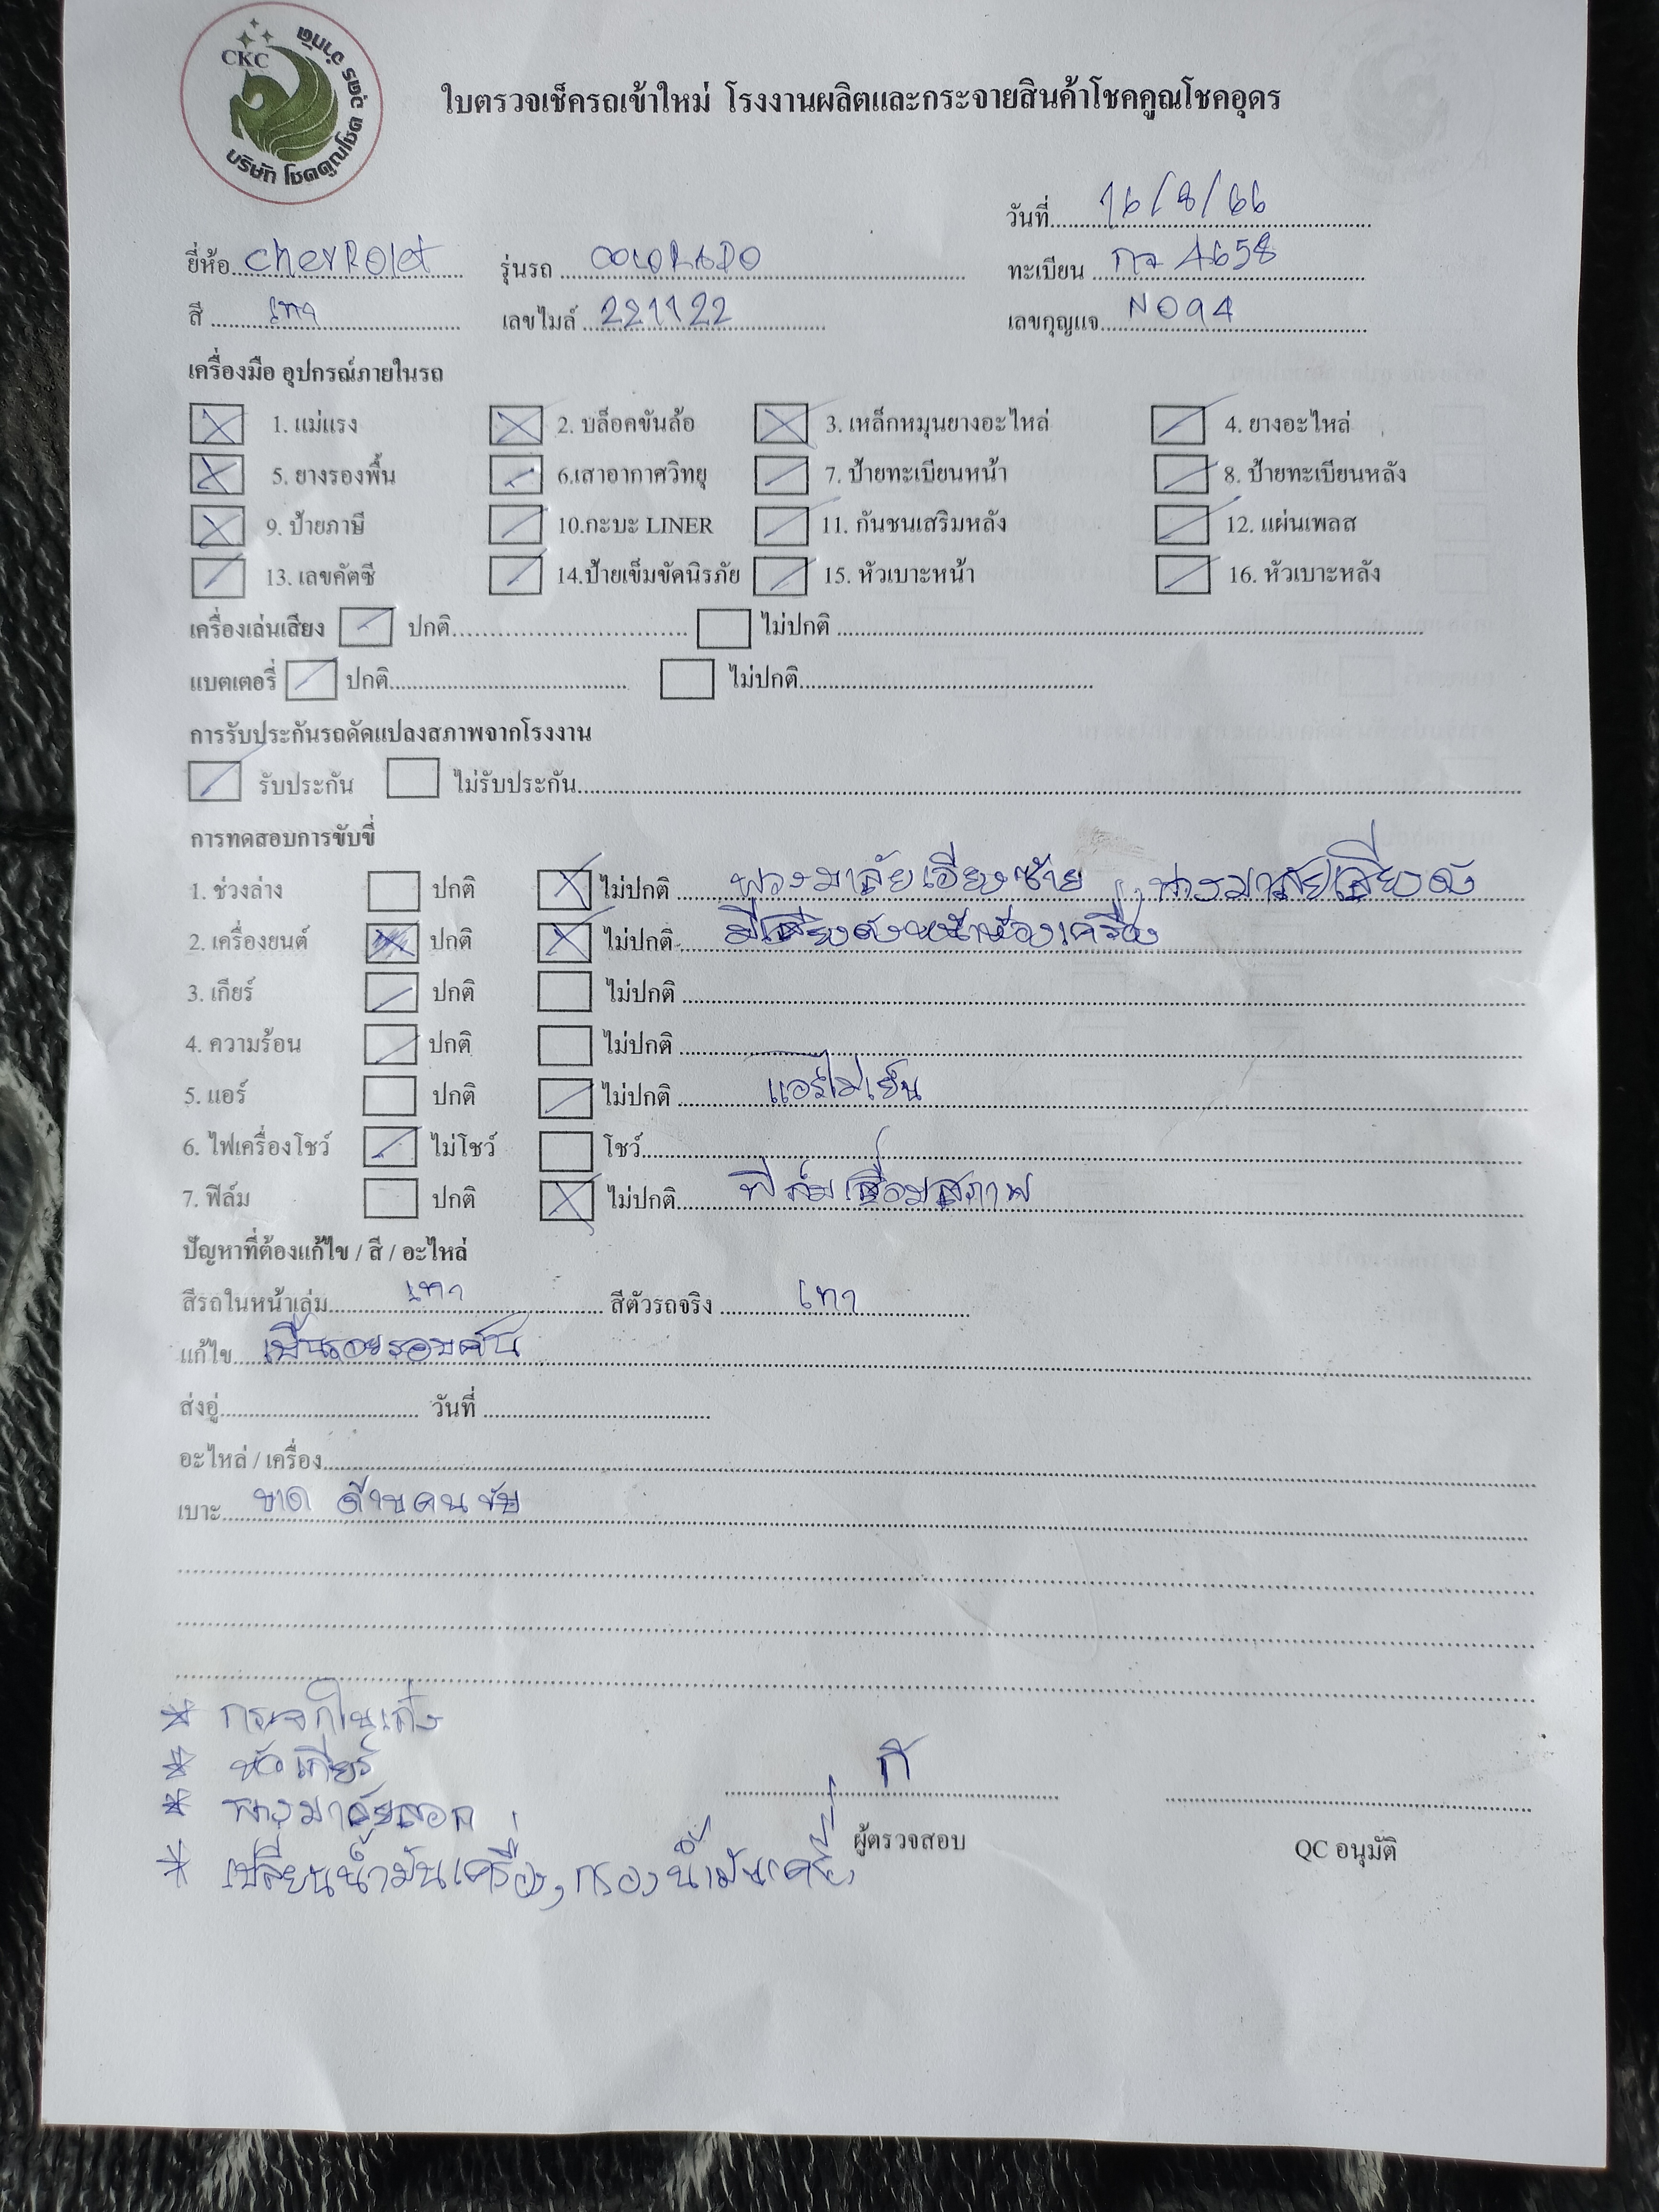 CKC
บริษัท โชคคูณโชค อุดร จำกัด
ใบตรวจเช็ครถเข้าใหม่ โรงงานผลิตและกระจายสินค้าโชคคูณโชคอุดร
วันที่ 16/8/66
ยี่ห้อ chevRolet รุ่นรถ COLORADO ทะเบียน 4658
สี เทา เลขไมล์ 221122 เลขกุญแจ N094
เครื่องมือ อุปกรณ์ภายในรถ
1. แม่แรง 2. บล็อคขันล้อ 3. เหล็กหมุนยางอะไหล่ 4. ยางอะไหล่
5. ยางรองพื้น 6.เสาอากาศวิทยุ 7. ป้ายทะเบียนหน้า 8. ป้ายทะเบียนหลัง
9. ป้ายภาษี 10.กะบะ LINER 11. กันชนเสริมหลัง 12. แผ่นเพลส
13. เลขคัตซี 14.ป้ายเข็มขัดนิรภัย 15. หัวเบาะหน้า 16. หัวเบาะหลัง
เครื่องเล่นเสียง ปกติ ไม่ปกติ
แบตเตอรี่ ปกติ ไม่ปกติ
การรับประกันรถดัดแปลงสภาพจากโรงงาน
รับประกัน ไม่รับประกัน
การทดสอบการขับขี่
1. ช่วงล่าง ปกติ ไม่ปกติ พวงมาลัยเอียงซ้าย , พวงมาลัยเสียงดัง
2. เครื่องยนต์ ปกติ ไม่ปกติ มีเสียงดังหน้าห้องเครื่อง
3. เกียร์ ปกติ ไม่ปกติ
4. ความร้อน ปกติ ไม่ปกติ
5. แอร์ ปกติ ไม่ปกติ แอร์ไม่เย็น
6. ไฟเครื่องโชว์ ไม่โชว์ โชว์
7. ฟิล์ม ปกติ ไม่ปกติ ฟิล์มเสื่อมสภาพ
ปัญหาที่ต้องแก้ไข / สี / อะไหล่
สีรถในหน้าเล่ม เทา สีตัวรถจริง เทา
แก้ไข เป็นรอยรอบคัน
ส่งอู่ วันที่
อะไหล่ / เครื่อง
เบาะ ขาด ด้านคนขับ
* กระจกในเก๋ง
* หัวเกียร์
* พวงมาลัยลอก
* เปลี่ยนน้ำมันเครื่อง, กรองน้ำมันเครื่อง
ก้
ผู้ตรวจสอบ QC อนุมัติ